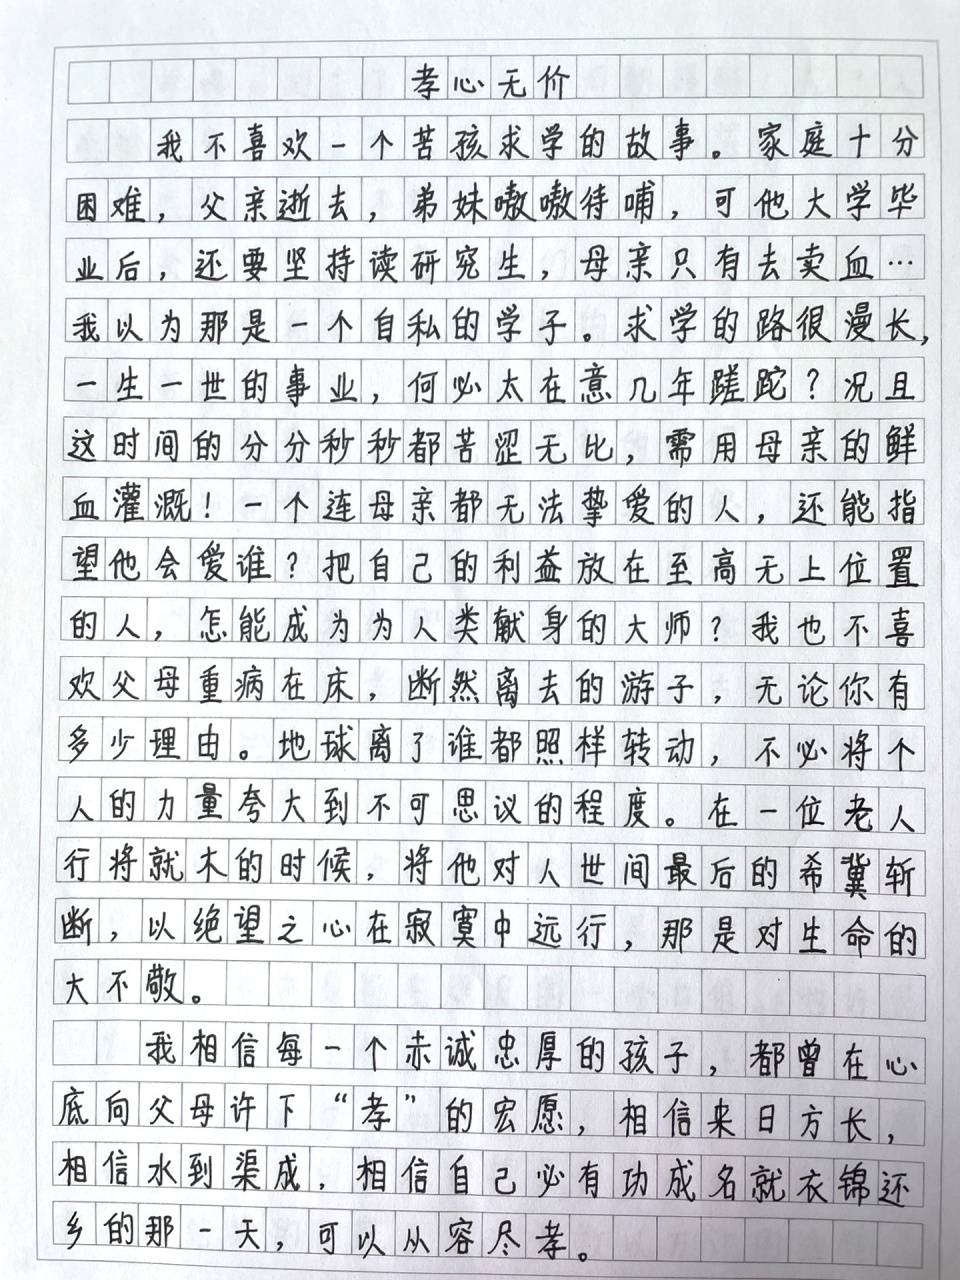 孝心无价
我不喜欢一个苦孩求学的故事。家庭十分
困难，父亲逝去，弟妹嗷嗷待哺，可他大学毕
业后，还要坚持读研究生，母亲只有去卖血…
我以为那是一个自私的学子。求学的路很漫长，
一生一世的事业，何必太在意几年蹉跎？况且
这时间的分分秒秒都苦涩无比，需用母亲的鲜
血灌溉！一个连母亲都无法挚爱的人，还能指
望他会爱谁？把自己的利益放在至高无上位置
的人，怎能成为为人类献身的大师？我也不喜
欢父母重病在床，断然离去的游子，无论你有
多少理由。地球离了谁都照样转动，不必将个
人的力量夸大到不可思议的程度。在一位老人
行将就木的时候，将他对人世间最后的希冀斩
断，以绝望之心在寂寞中远行，那是对生命的
大不敬。
我相信每一个赤诚忠厚的孩子，都曾在心
底向父母许下“孝”的宏愿，相信来日方长，
相信水到渠成，相信自己必有功成名就衣锦还
乡的那一天，可以从容尽孝。